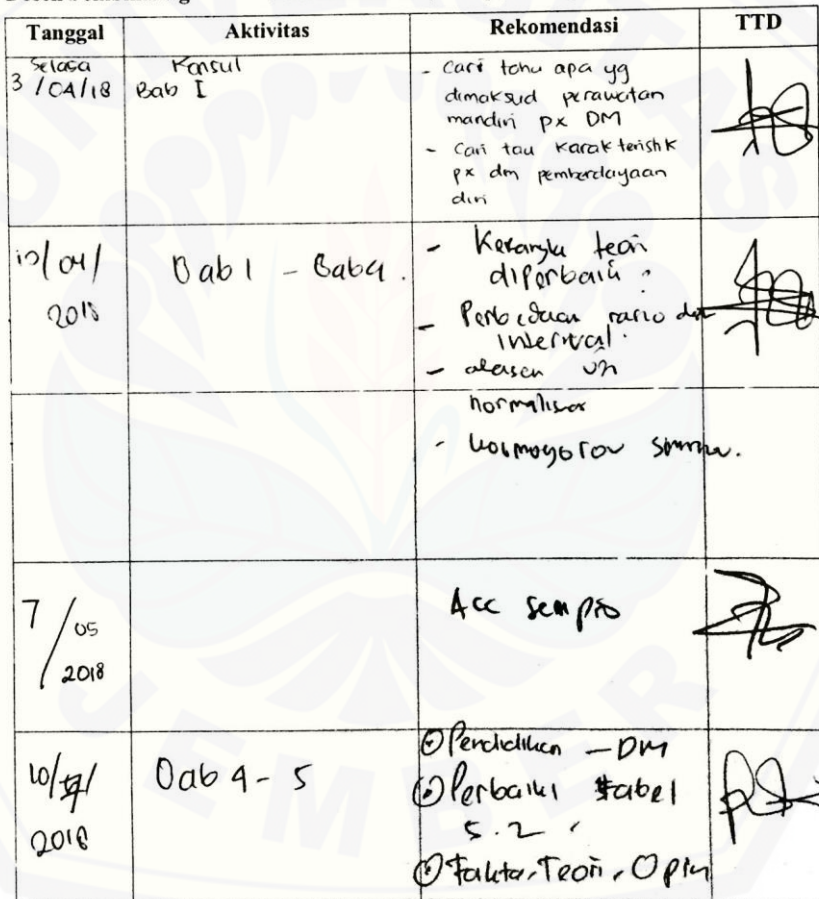 Tanggal Aktivitas Rekomendasi TTD
Selasa
3/04/18
Konsul
Bab I
- Cari tahu apa yg
dimaksud perawatan
mandiri px DM
- Cari tau karakteristik
px dm pemberdayaan
diri
10/04/
2018
Bab 1 - Bab 4.
- Kerangka teori
diperbaiki
- Perbedaan rasio dan
interval.
- alasan uji
normalisas
-
7/05
2018
Acc sempro
10/
2018
Bab 4 - 5
Pendidikan - DM
Perbaiki tabel
5.2
Fakta, Teori, Opini
UNIVERSITAS
JEMBER